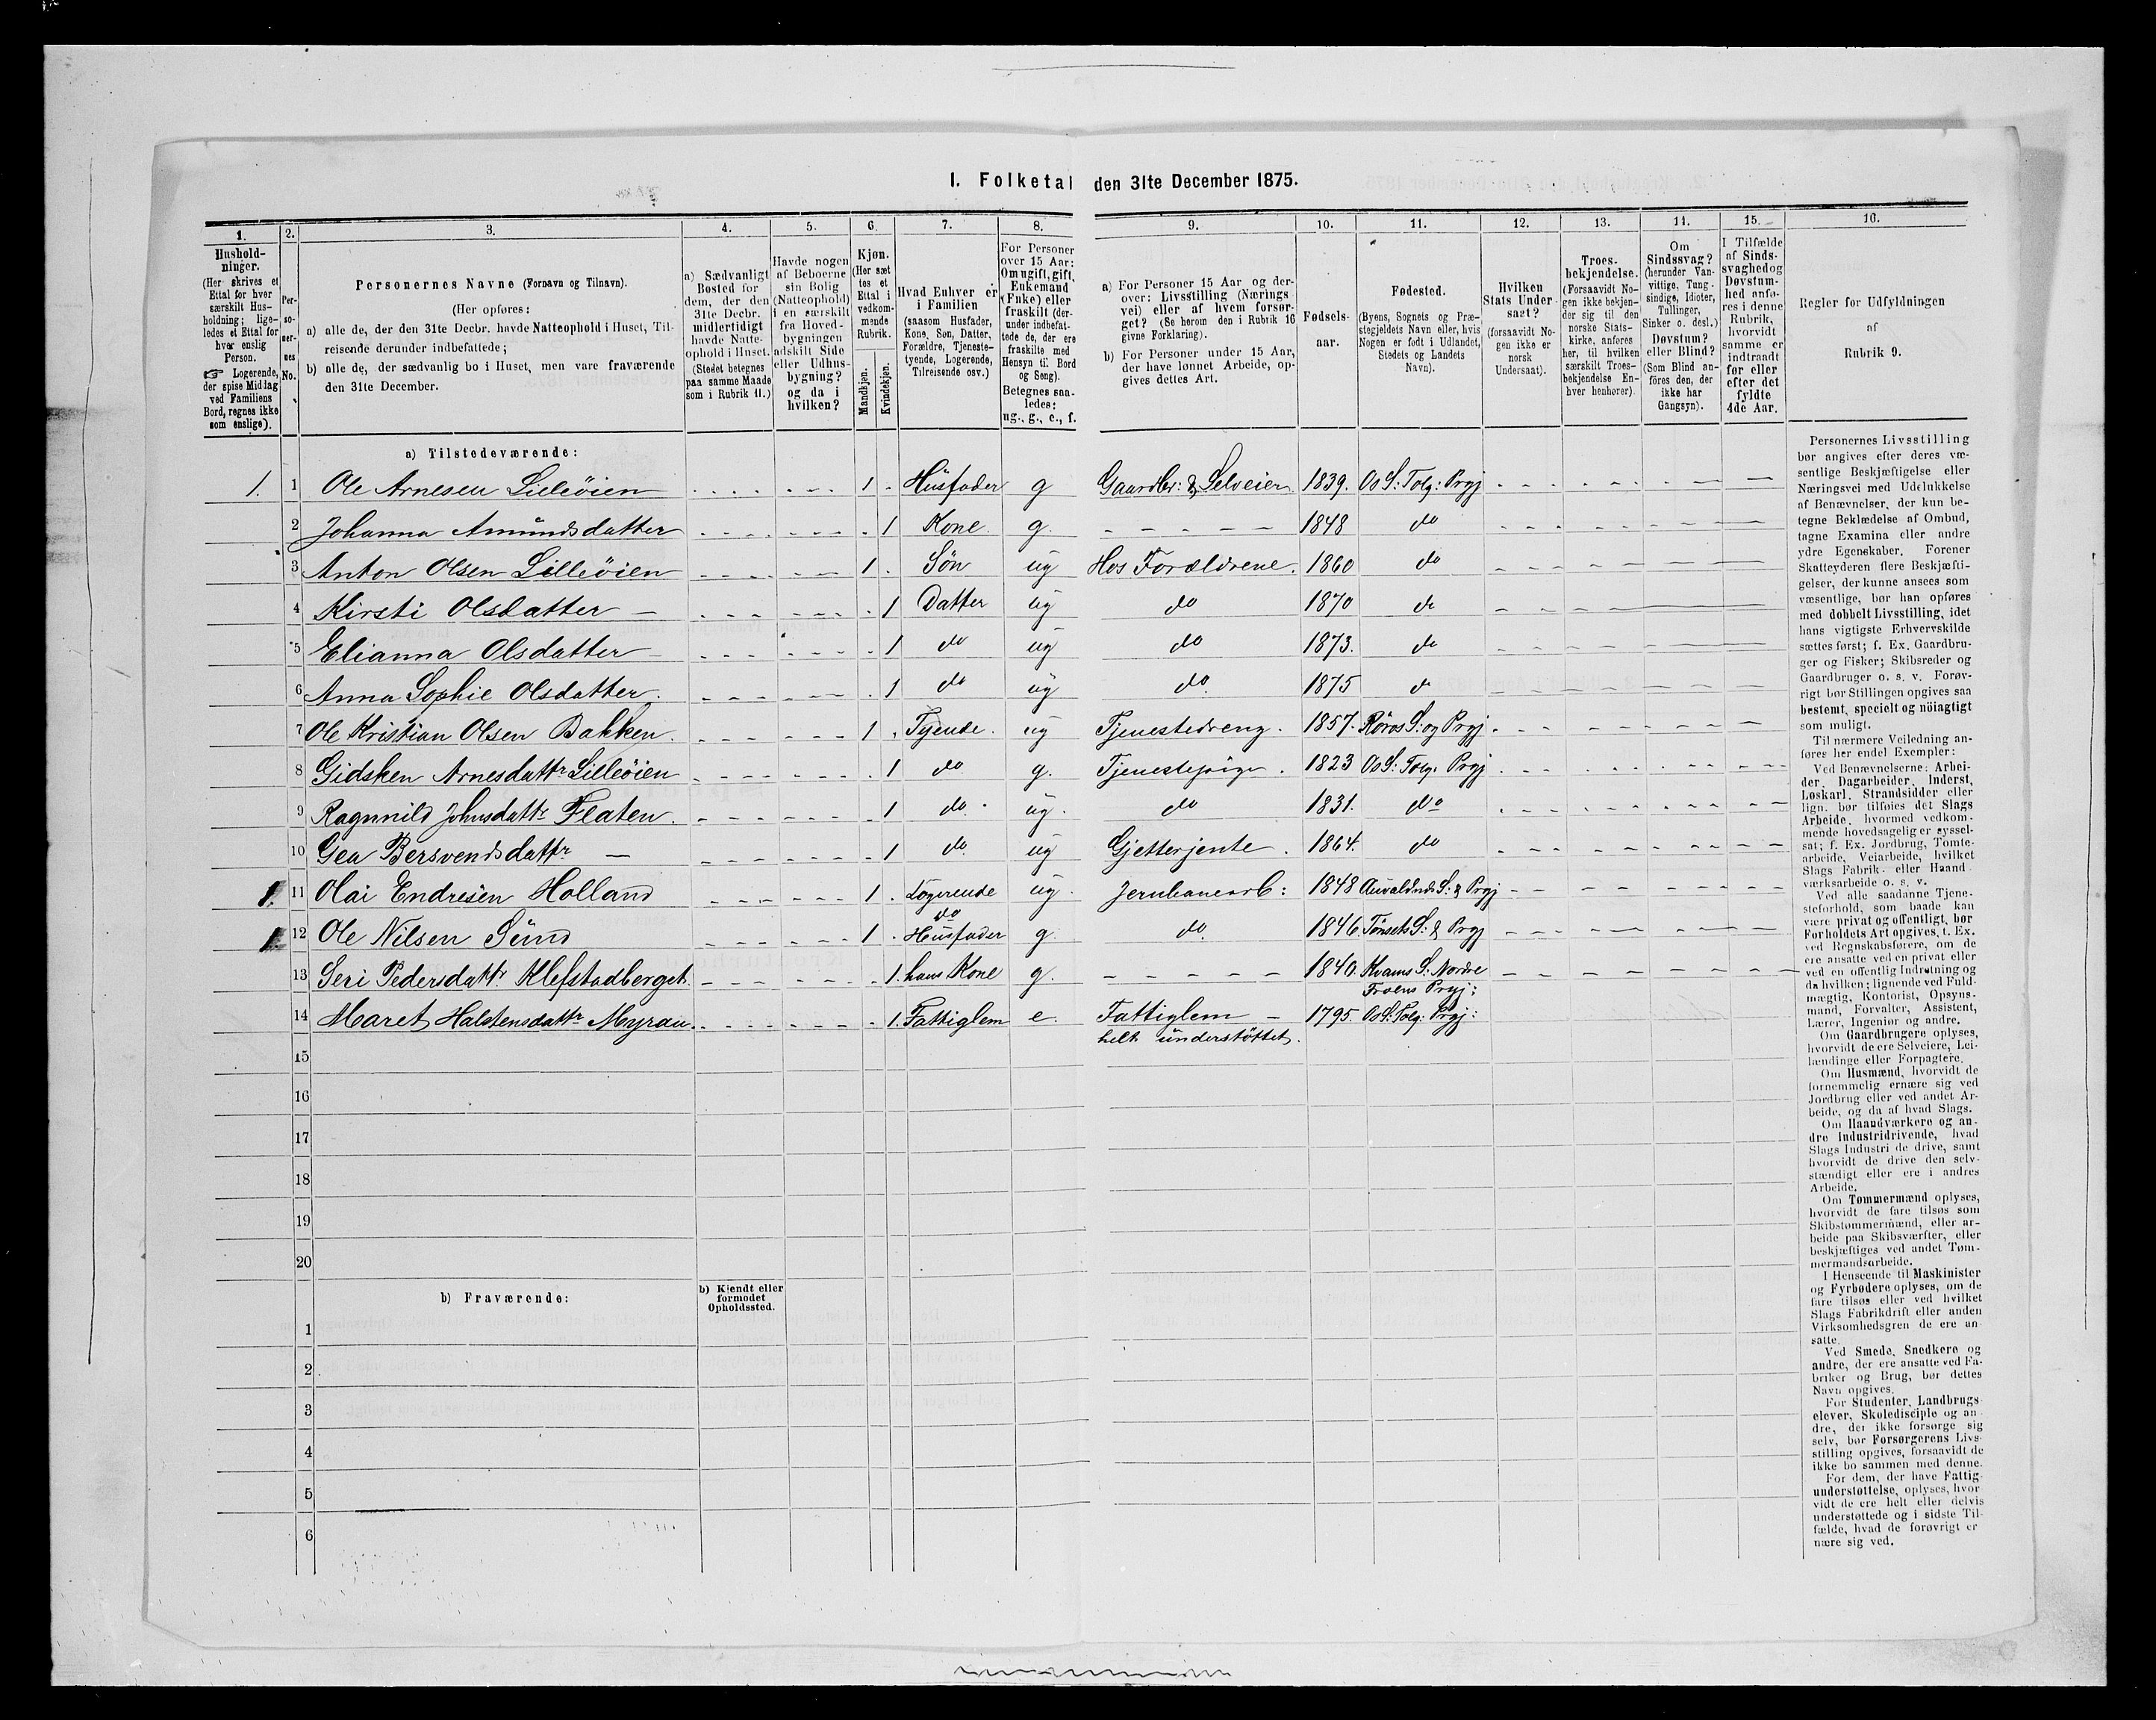 I. Folketal den 31te December 1875.
1. 2. 3. 4. 5. 6. 7. 8. 9. 10. 11. 12. 13. 14. 15. 16.
Hushold-
ninger.
(Her skrives et
Ettal for hver
særskilt Hus-
holdning; lige-
ledes et Ettal for
hver enslig
Person.
☞ Logerende,
der spise Middag
ved Familiens
Bord, regnes ikke
som enslige).
Per-
so-
ner-
nes
No.
Personernes Navne (Fornavn og Tilnavn).
(Her opføres:
a) alle de, der den 31te Decbr. havde Natteophold i Huset, Til-
reisende derunder indbefattede;
b) alle de, der sædvanlig bo i Huset, men vare fraværende
den 31te December.
a) Sædvanligt
Bosted for
dem, der den
31te Decbr.
midlertidigt
havde Natte-
ophold i Huset.
(Stedet betegnes
paa samme Maade
som i Rubrik 11.)
Havde nogen
af Beboerne
sin Bolig
(Natteophold)
i en særskilt
fra Hoved-
bygningen
adskilt Side
eller Udhus-
bygning?
og da i
hvilken?
Kjøn.
(Her sæt
tes et
Ettal i
vedkom-
mende
Rubrik.
Mandkjøn.
Kvindekjøn.
Hvad Enhver er
i Familien
(saasom Husfader,
Kone, Søn, Datter,
Forældre, Tjeneste-
tyende, Logerende,
Tilreisende osv.)
For Personer
over 15 Aar:
Om ugift, gift,
Enkemand
(Enke) eller
fraskilt (der-
under indbefat-
tede de, der ere
fraskilte med
Hensyn til Bord
og Seng).
Betegnes saa-
ledes:
ug., g., e., f.
a) For Personer 15 Aar og der-
over: Livsstilling (Nærings
vei) eller af hvem forsør-
get? (Se herom den i Rubrik 16
givne Forklaring).
b) For Personer under 15 Aar,
der have lønnet Arbeide, op-
gives dettes Art.
Fødsels-
aar.
Fødested.
(Byens, Sognets og Præ-
stegjeldets Navn eller, hvis
Nogen er født i Udlandet,
Stedets og Landets
Navn).
Hvilken
Stats Under-
saat?
(forsaavidt No-
gen ikke er
norsk
Undersaat).
Troes-
bekjendelse.
(Forsaavidt No-
gen ikke bekjen-
der sig til den
norske Stats-
kirke, anføres
her, til hvilken
særskilt Troes-
bekjendelse En-
hver henhører).
Om
Sindssvag?
(herunder Van-
vittige, Tung-
sindige, Idioter,
Tullinger,
Sinker o. desl.)
Døvstum?
eller Blind?
(Som Blind an-
føres den, der
ikke har
Gangsyn).
I Tilfælde
af Sinds-
svaghed og
Døvstum-
hed anfø-
res i denne
Rubrik,
hvorvidt
samme er
indtraadt
før eller
efter det
fyldte
4de Aar.
Regler for Udfyldningen
af
Rubrik 9.
a) Tilstedeværende:
1. 1 Ole Arnesen Lilleöien 1 Husfader g Gaardbr: & Selveier 1839. Os S: Tolg: Prgj
2 Johanna Amundsdatter 1 Kone. g. 1848 do
3 Anton Olsen Lilleöien 1 Sön ug Hos Forældrene. 1860 do
4 Kirsti Olsdatter 1 Datter ug do 1870 do
5 Elianna Olsdatter 1 do ug do 1873. do
6 Anna Sophie Olsdatter. 1 do ug do. 1875 do
7 Ole Kristian Olsen Bakken. 1 Tyende. ug Tjenestedreng. 1857. Röros S: og Prgj
8 Gidsken Arnesdattr Lilleöien 1 do g. Tjenestepige. 1823 Os S: Tolg. Prgj
9 Ragnnild Johnsdattr Flaten. 1 do. ug. do 1831. do
10 Gea Bersvendsdattr 1 do ug Gjetterjente. 1864. do
1. 11 Olai Endresen Holland 1 Logerende ug. Jernbanearb: 1848 S: & Prgj
do
1. 12 Ole Nilsen Sund 1 Husfader g. do. 1846. Tönsets S: & Prgj
13 Seri Pedersdattr Klefstadberget. 1. hans Kone g. 1840. Kvams S. Nordre
Froens Prgj:
14 Maret Halstensdattr Myrau. 1. Fattiglem e. Fattiglem 1795. Os S: Tolg: Prgj:
helt understöttet.
15
16
17
18
19
20
b) Fraværende:
b) Kjendt eller
formodet
Opholdssted.
1
2
3
4
5
6
Personernes Livsstilling
bør angives efter deres væ-
sentlige Beskjæftigelse eller
Næringsvei med Udelukkelse
af Benævnelser, der kun be-
tegne Beklædelse af Ombud,
tagne Examina eller andre
ydre Egenskaber. Forener
Skatteyderen flere Beskjæfti-
gelser, der kunne ansees som
væsentlige, bør han opføres
med dobbelt Livsstilling, idet
hans vigtigste Erhvervskilde
sættes først; f. Ex. Gaardbru-
ger og Fisker; Skibsreder og
Gaardbruger o. s. v. Forøv-
rigt bør Stillingen opgives saa
bestemt, specielt og nöiagtigt
som muligt.
Til nærmere Veiledning an-
føres her endel Exempler:
Ved Benævnelserne: Arbei-
der, Dagarbeider, Inderst,
Løskarl, Strandsidder eller
lign. bør tilføies det Slags
Arbeide, hvormed vedkom-
mende hovedsagelig er syssel-
sat; f. Ex. Jordbrug, Tomte-
arbeide, Veiarbeide, hvilket
Slags Fabrik- eller Haand-
værksarbeide o. s. v.
Ved alle saadanne Tjene-
steforhold, som baade kan
være privat og offentligt, bør
Forholdets Art opgives, t. Ex.
ved Regnskabsførere, om de
ere ansatte ved en privat eller
ved en offentlig Indretning og
da hvilken; lignende ved Fuld-
mægtig, Kontorist, Opsyns-
mand, Forvalter, Assistent,
Lærer, Ingeniør og andre.
Om Gaardbrugere oplyses,
hvorvidt de ere Selveiere, Lei-
lændinge eller Forpagtere.
Om Husmænd, hvorvidt de
fornemmelig ernære sig ved
Jordbrug eller ved andet Ar-
beide, og da af hvad Slags.
Om Haandværkere og an-
dre Industridrivende, hvad
Slags Industri de drive, samt
hvorvidt de drive den selv-
stændigt eller ere i andres
Arbeide.
Om Tømmermænd oplyses,
hvorvidt de fare tilsøs som
Skibstømmermænd, eller ar-
beide paa Skibsværfter, eller
beskjæftiges ved andet Tøm-
mermandsarbeide.
I Henseende til Maskinister
og Fyrbødere oplyses, om de
fare tilsøs eller ved hvilket
Slags Fabrikdrift eller anden
Virksomhedsgren de ere an-
satte.
Ved Smede, Snedkere og
andre, der ere ansatte ved Fa-
briker og Brug, bør dettes
Navn opgives.
For Studenter, Landbrugs-
elever, Skoledisciple og an-
dre, der ikke forsørge sig
selv, bør Forsørgerens Livs-
stilling opgives, forsaavidt de
ikke bo sammen med denne.
For dem, der have Fattig-
understøttelse, oplyses, hvor-
vidt de ere helt eller delvis
understøttede og i sidste Til-
fælde, hvad de forøvrigt er-
nære sig ved.